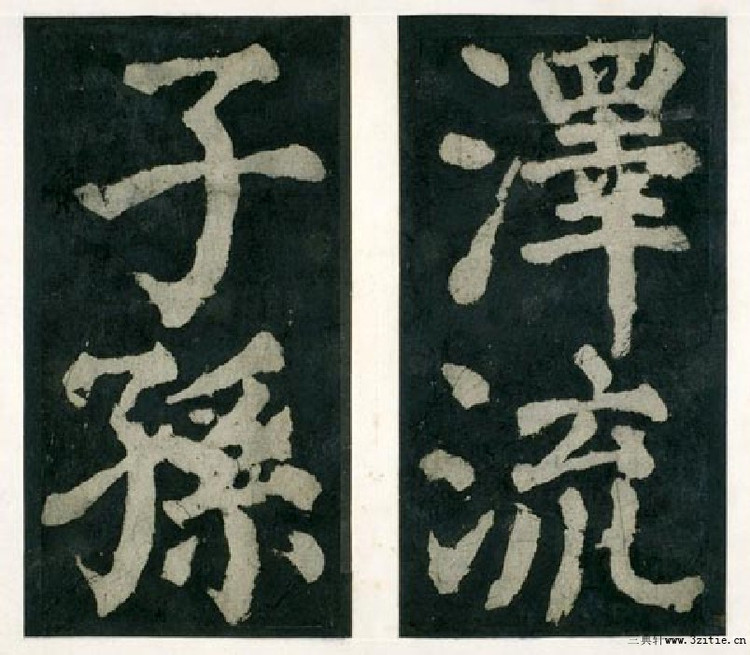 澤流
子孫
三典轩www.3zitie.cn